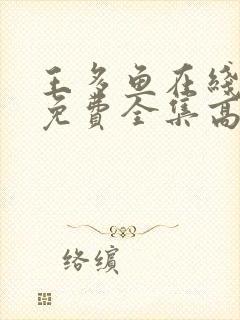 王多鱼在线
免费全集高
络缤